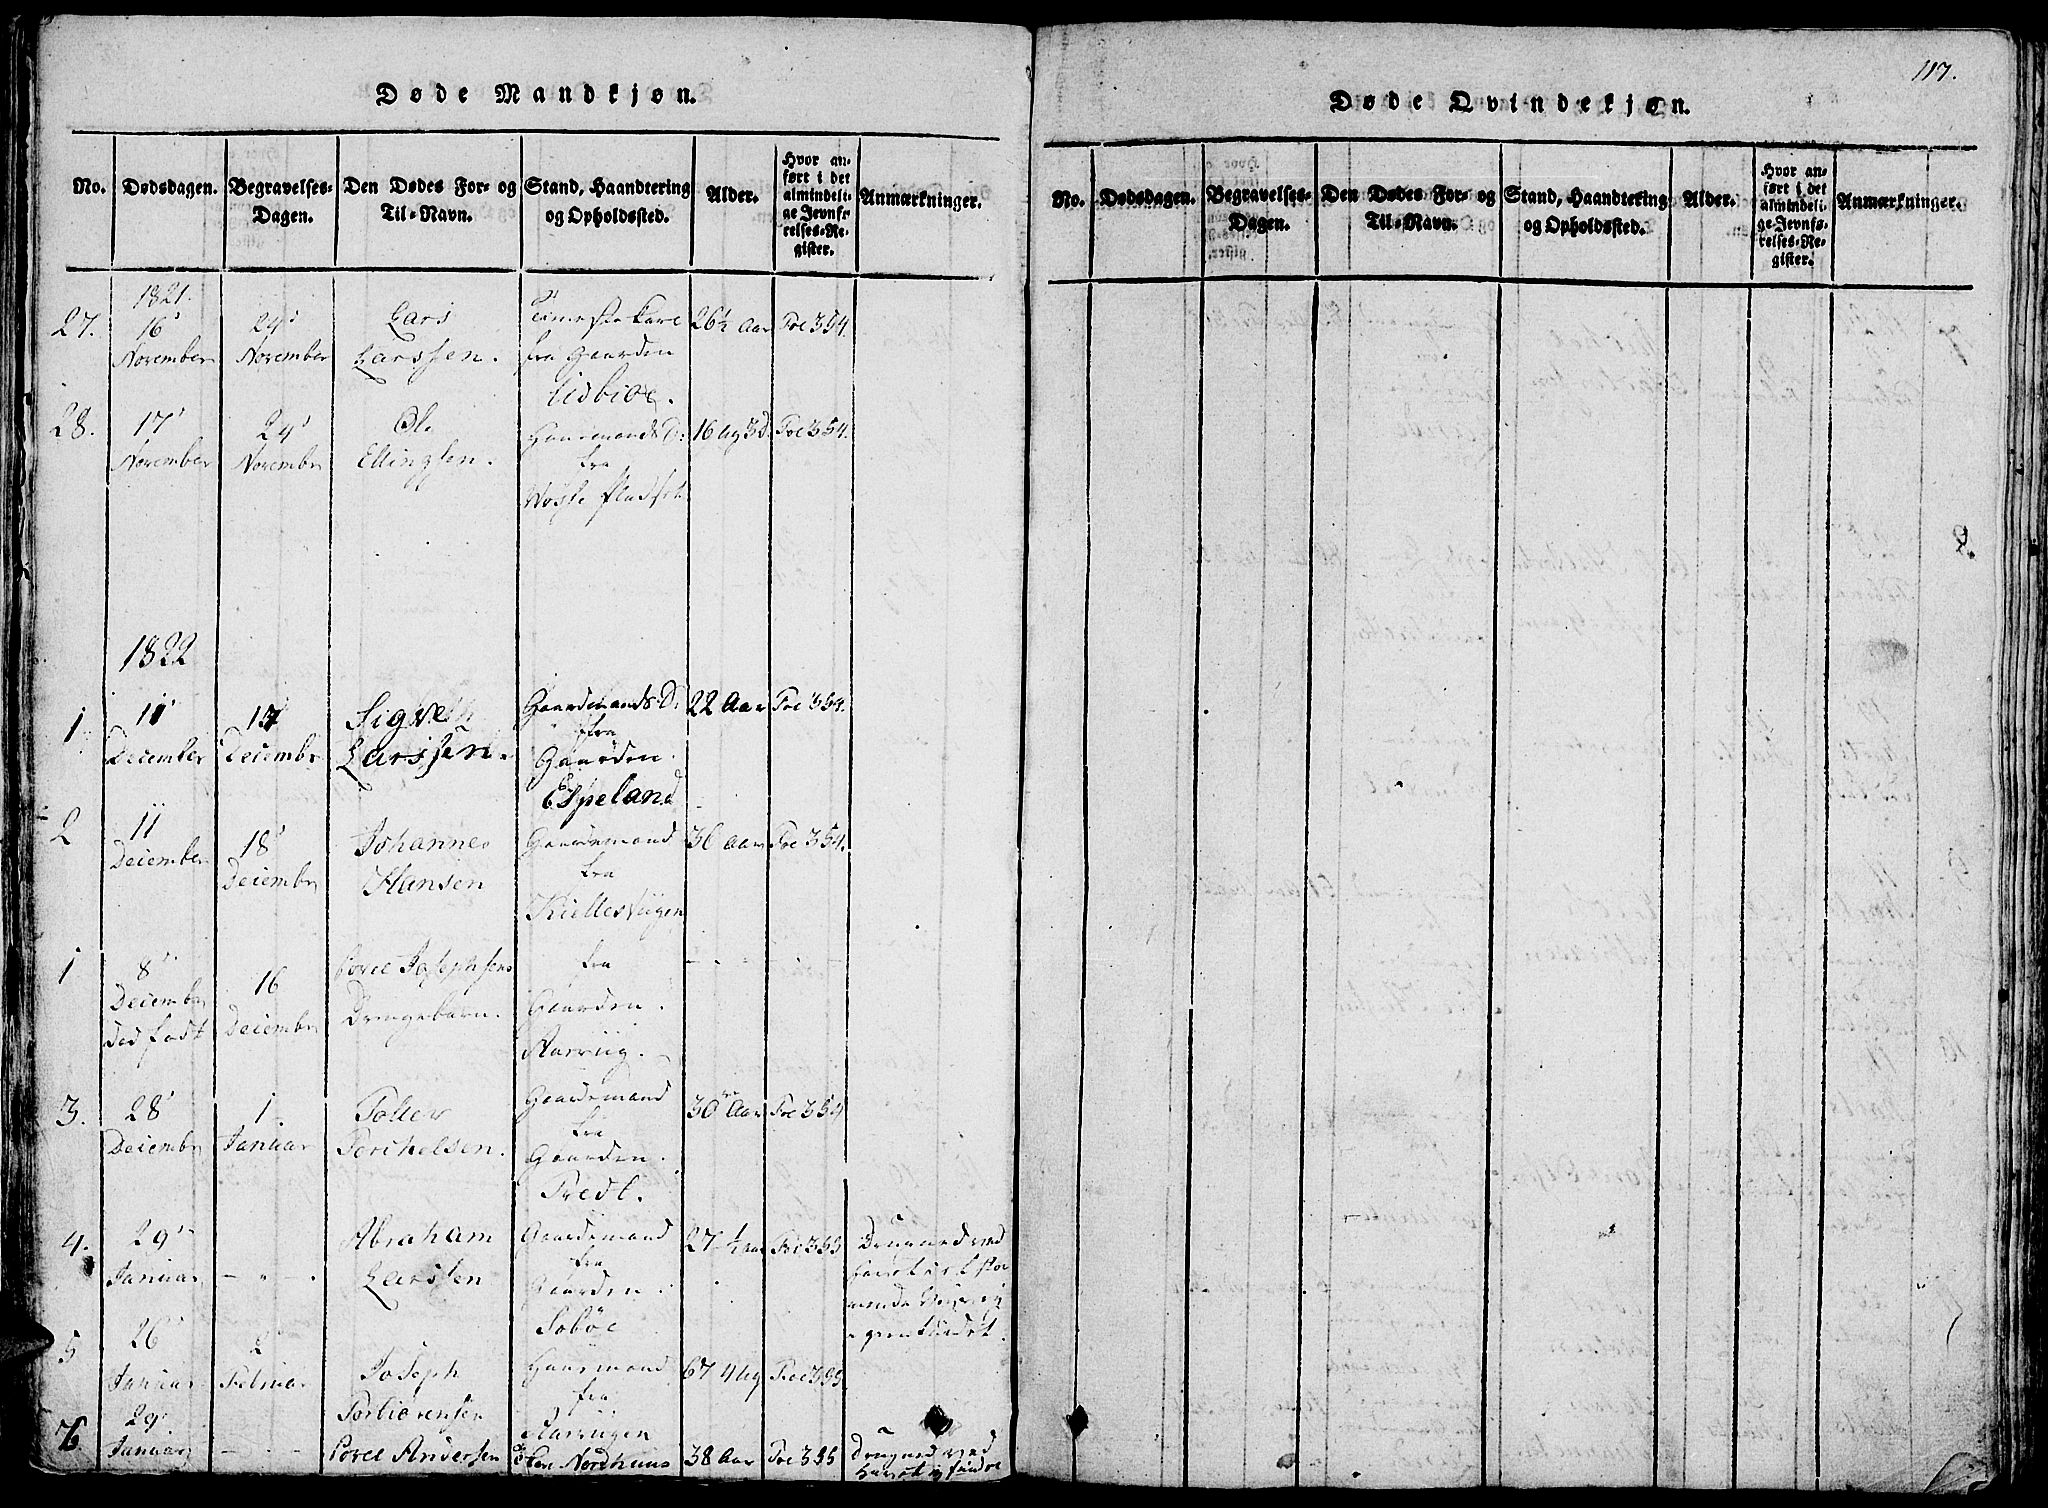 117.
Døde Mandkjøn.
No.
Dødsdagen.
Begravelses-
Dagen.
Den Dødes For- og
Til-Navn.
Stand, Haandtering
og Opholdssted.
Alder.
Hvor an-
ført i det
almindeli-
ge Jevnfø-
relses-Re-
gister.
Anmærkninger.
1821.
27.
16'
November
24'
November
Lars
Larssen.
fra Gaarden
26½ Aar
Foe 354.
28.
17'
November
24'
November
Ole
Ellingsen.
Huusmands D:
fra
16 Ug 3 D.
Foe 354.
1822
1
11'
December
17
Decembr
Sigveth
Larssen.
Gaardmands D:
fra
Gaarden.
Espeland
22 Aar
Foe 354.
2
11
December
18'
Decembr
Johannes
Hansen
Gaardemand
fra
Kiellesviigen
36 Aar
Foe 354.
1
8'
December
Død født
16
Decembr
Povel Josephsens
Drengebarn.
fra
Gaarden.
Aarviig.
3.
28'
Decembr
1.
Januar
Toller
Torchelsen.
Gaardemand
fra
Gaarden.
Tredt.
30 Aar
Foe 354
4.
29'
Januar
Abraham
Larssen
Gaardemand
fra
Gaarden.
Søbøe
27½ aar
Foe 355
Drugned ved
5
26'
Januar
2'
Februar
Joseph
Torbiørensen
Huusmand
fra
Aarviigen
67 4 Ug
Foe 355
6
29'
Januar
Povel Andersen
Nordhuus
38 Aar
Foe 355
Drugned ved
Døde Qvindekjøn.
No.
Dødsdagen.
Begravelses-
Dagen.
Den Dødes For- og
Til-Navn.
Stand, Haandtering
og Opholdssted.
Alder.
Hvor an-
ført i det
almindeli-
ge Jevnfø-
relses-Re-
gister.
Anmærkninger.